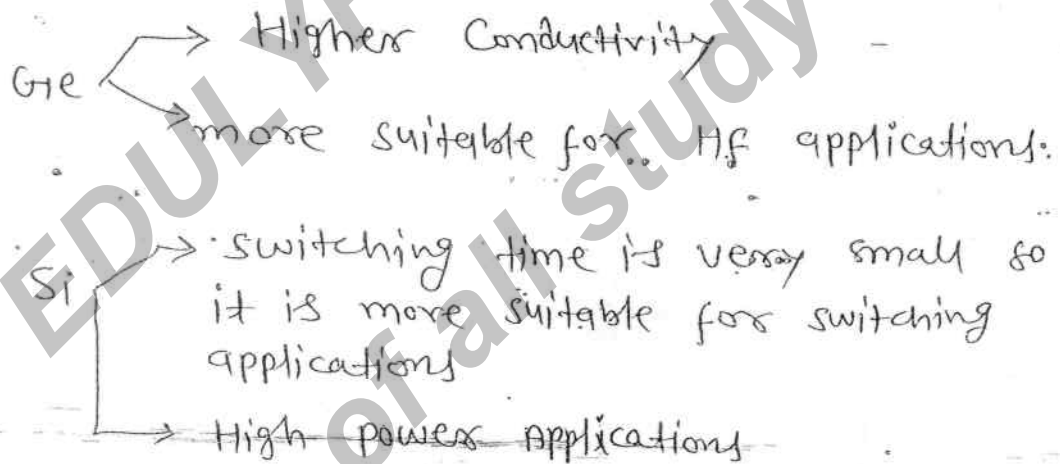 Higher Conductivity
Ge
more suitable for Hf applications.
Si switching time is very small so
it is more suitable for switching
applications
High power Applications
EDULY
of all study